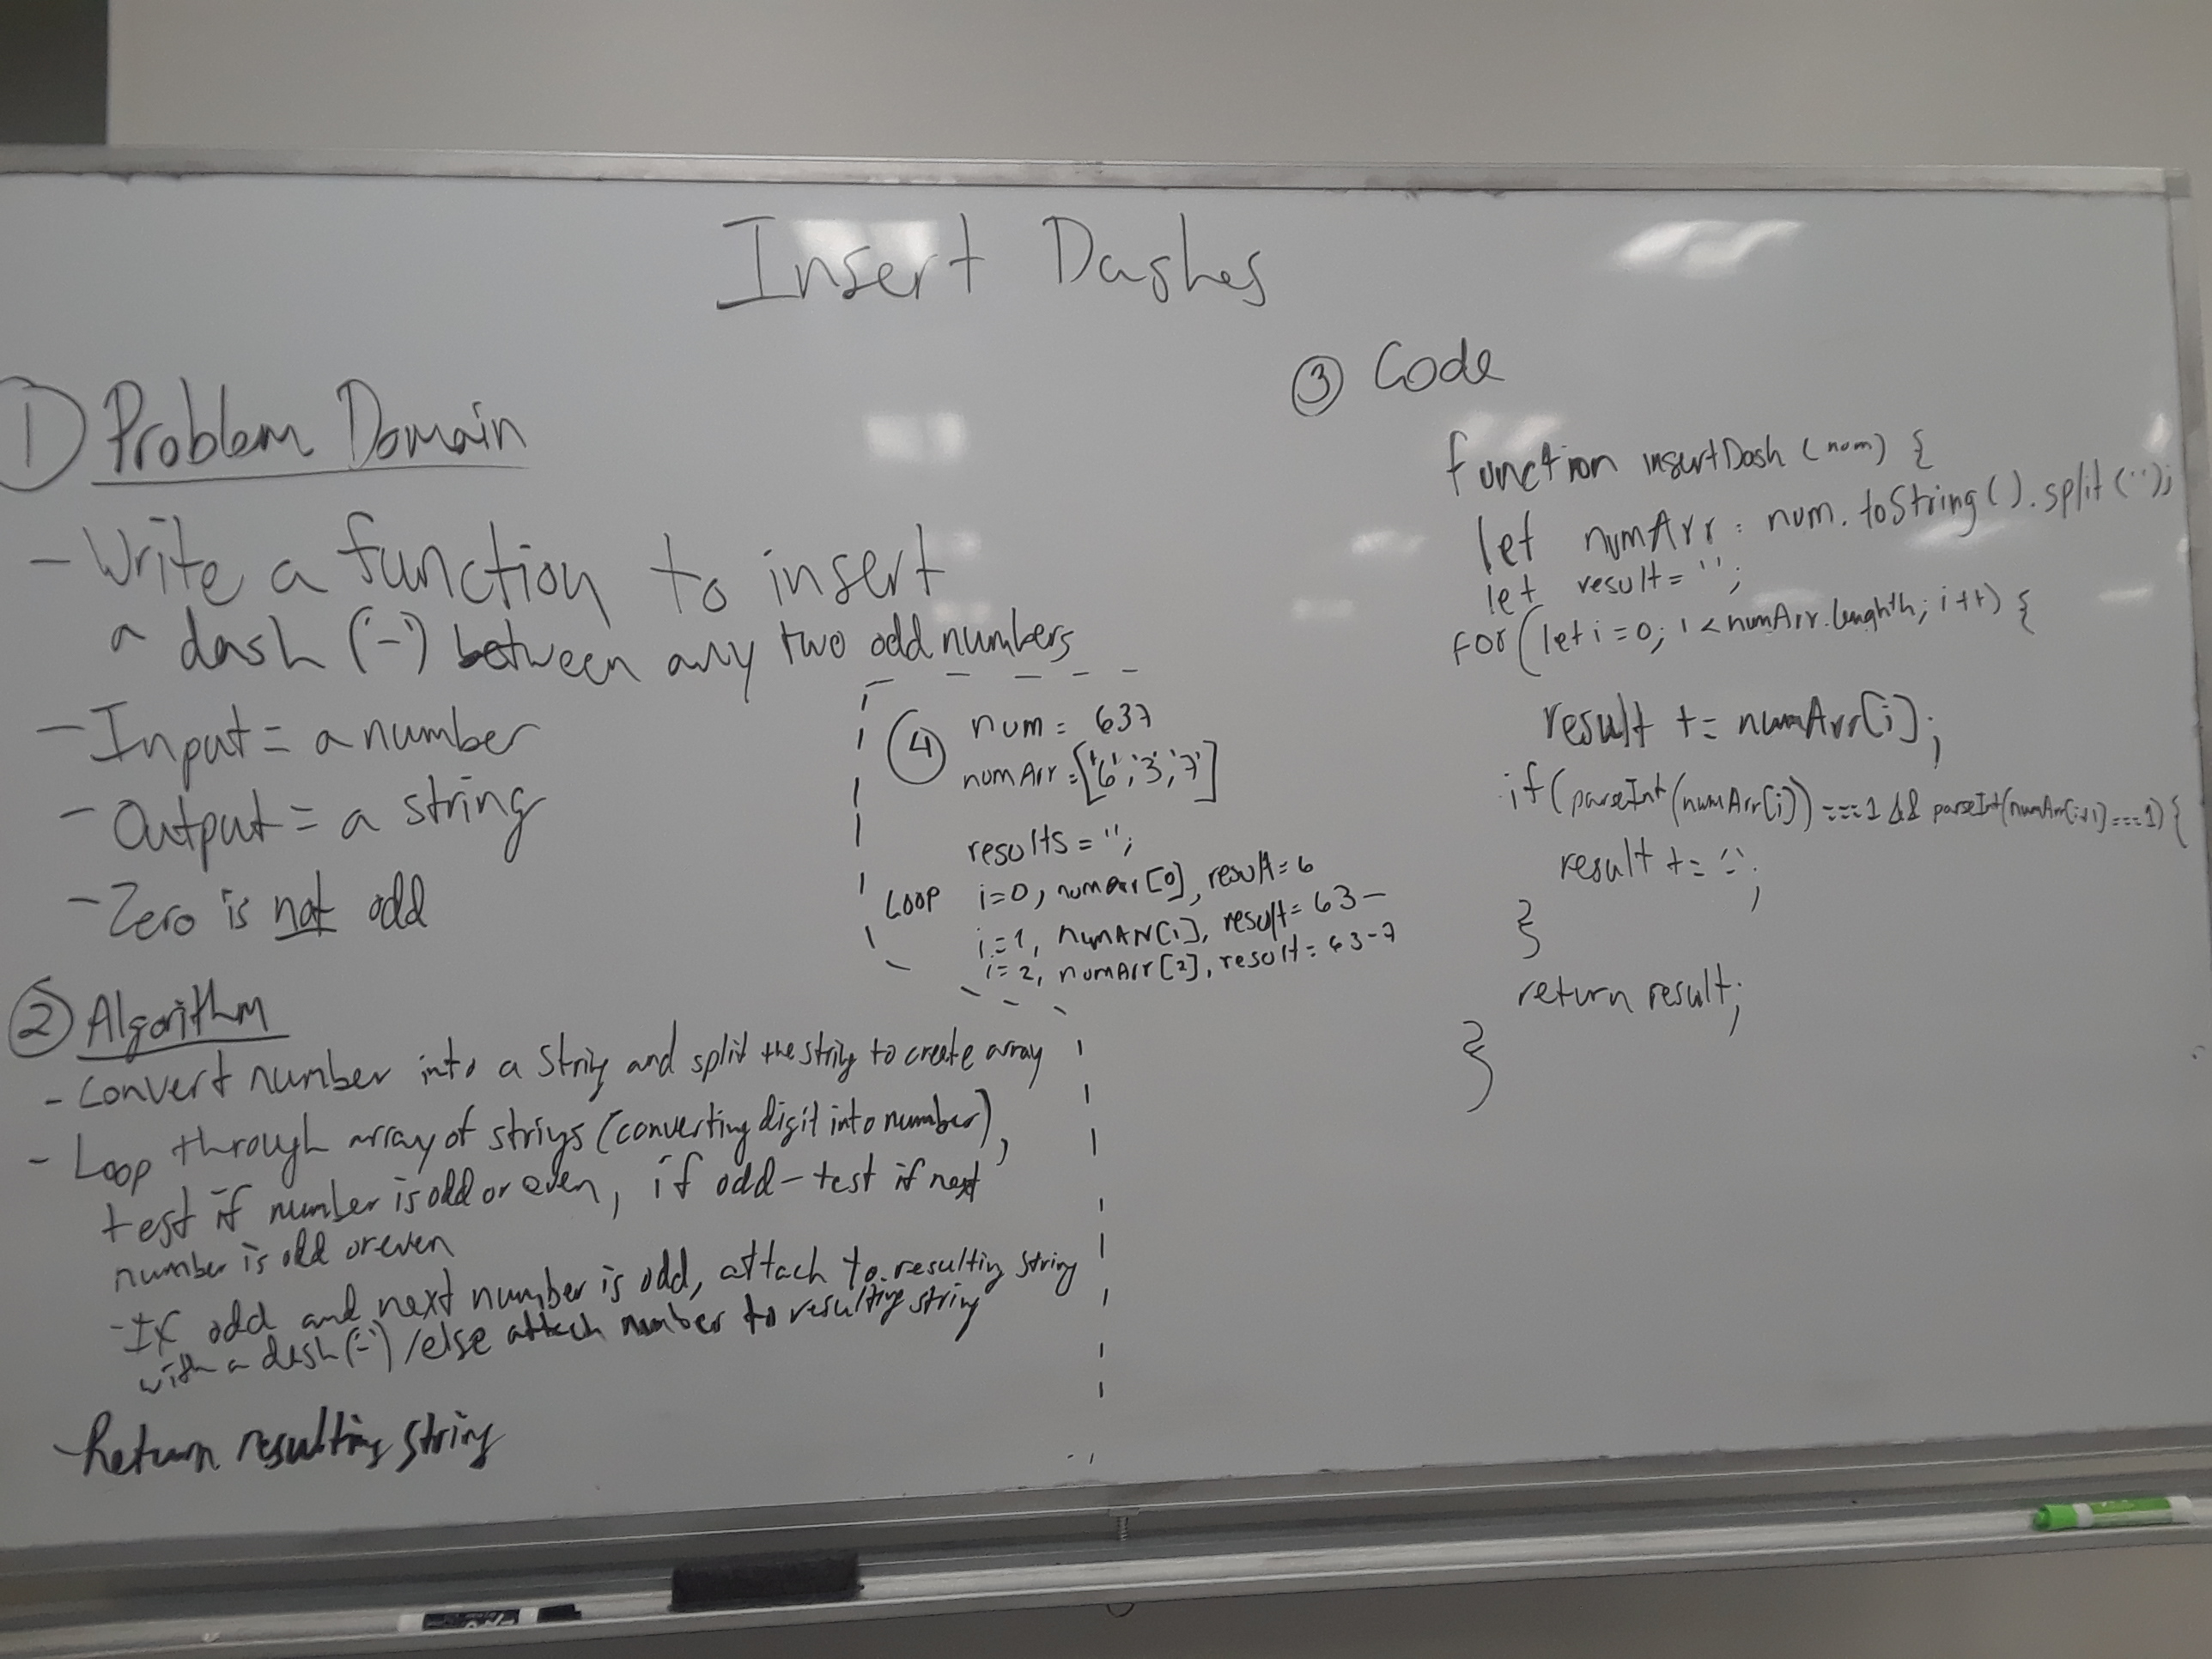 Insert Dashes
① Problem Domain
- Write a function to insert
a dash ('-') between any two odd numbers
- Input = a number
- Output = a string
- Zero is not odd
② Algorithm
- Convert number into a string and split the string to create array
- Loop through array of strings (converting digit into number),
test if number is odd or even, if odd - test if next
number is odd or even
- If odd and next number is odd, attach to resulting string
with a dash ('-') /else attach number to resulting string
- Return resulting string
④ num = 637
numArr = ['6','3','7']
results = '';
LOOP i=0, numArr[0], result = 6
i=1, numArr[1], result = 63-
i=2, numArr[2], result = 63-7
③ Code
function insertDash (num) {
let numArr = num.toString().split('');
let result = '';
for (let i=0; i < numArr.lenghth; i++) {
result += numArr[i];
if (parseInt(numArr[i]) === 1 && parseInt(numArr[i+1] === 1) {
result += '-';
}
return result;
}